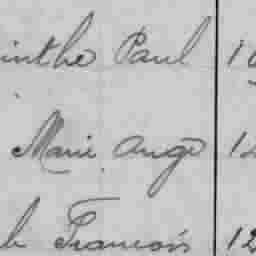 inthe Paul 1
Marie Ange 1
h François 12